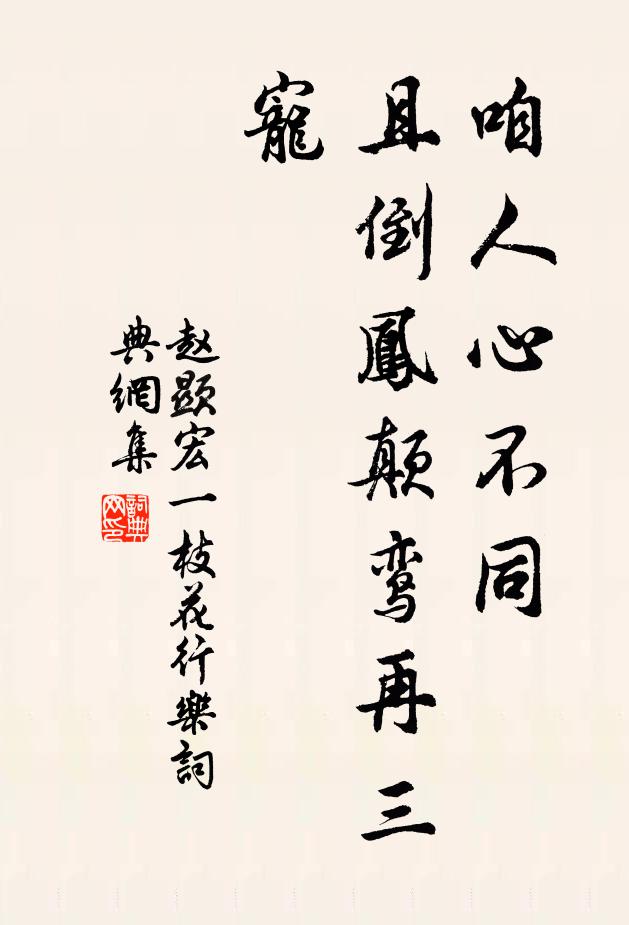 咱人心不同
且倒鳳顛鸾再三
寵
赵顯宏一枝花行樂詞
典網集
詞典
网印